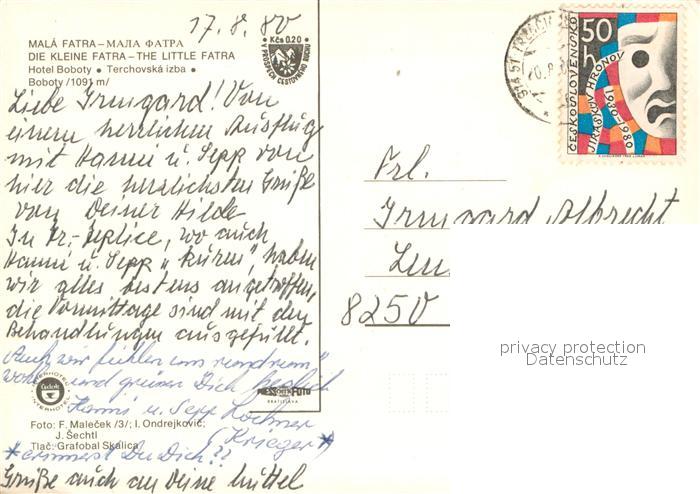 17.8.80
MALÁ FATRA – МАЛА ФАТРА
DIE KLEINE FATRA – THE LITTLE FATRA
Hotel Boboty • Terchovská izba •
Boboty /1091 m/
• Kčs 0.20 •
Liebe Irmgard! Von
einem herrlichen Ausflug
mit Hanni u. Sepp von
hier die herzlichsten Grüße
von Deiner Hilde
In Tr.-Teplice, wo auch
Hanni u. Sepp "kuren", haben
wir alles bestens angetroffen,
die Vormittage sind mit den
Behandlungen ausgefüllt.
Auch wir fühlen uns "rundrum"
wohl und grüßen Dich herzlich
Hanni u. Sepp
(Krieger*)
*erinnerst Du Dich??
Grüße auch an Deine Mutter
INTERHOTEL
PRESSFOTO
BRATISLAVA
Foto: F. Maleček /3/; I. Ondrejkovič;
J. Šechtl
Tlač: Grafobal Skalica
50
h
ČESKOSLOVENSKO
JIRÁSKŮV HRONOV
1930-1980
Frl.
Irmgard Albrecht
8250
privacy protection
Datenschutz